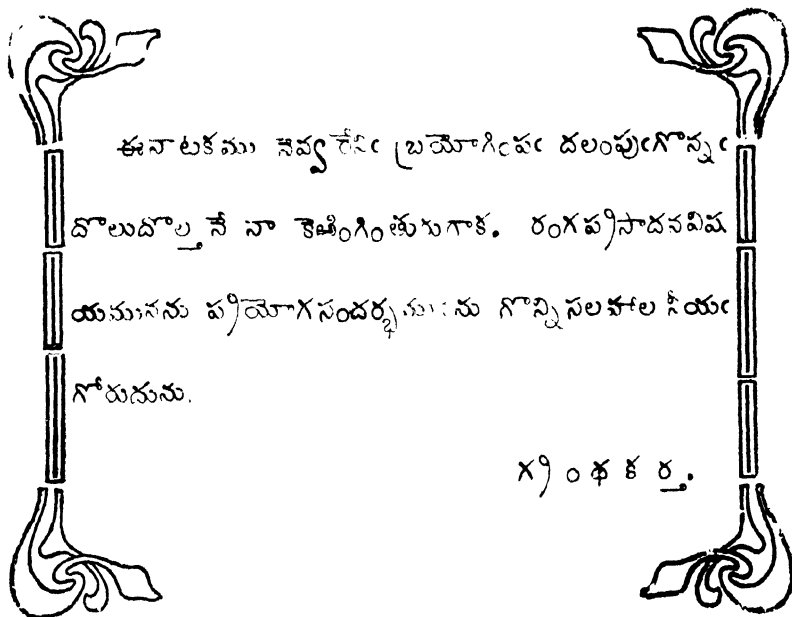 ఈనాటకము నెవ్వరేనిఁ బ్రయోగింపఁ దలంపుఁగొన్నఁ
దొలుదొల్తనే నా కెఱింగింతురుగాక. రంగప్రసాదనవిష
యమునను ప్రయోగసందర్భమునను గొన్నిసలహాల నీయఁ
గోరుదును.
గ్రంథకర్త.